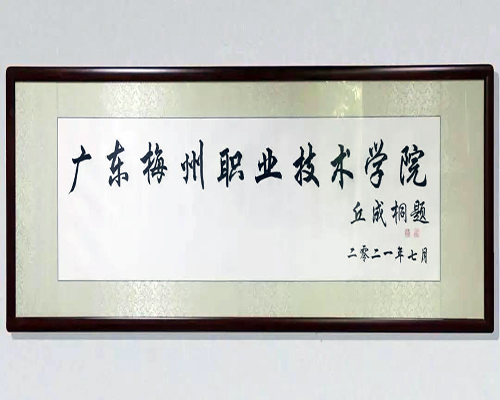 广东梅州职业技术学院
丘成桐题
二零二一年七月